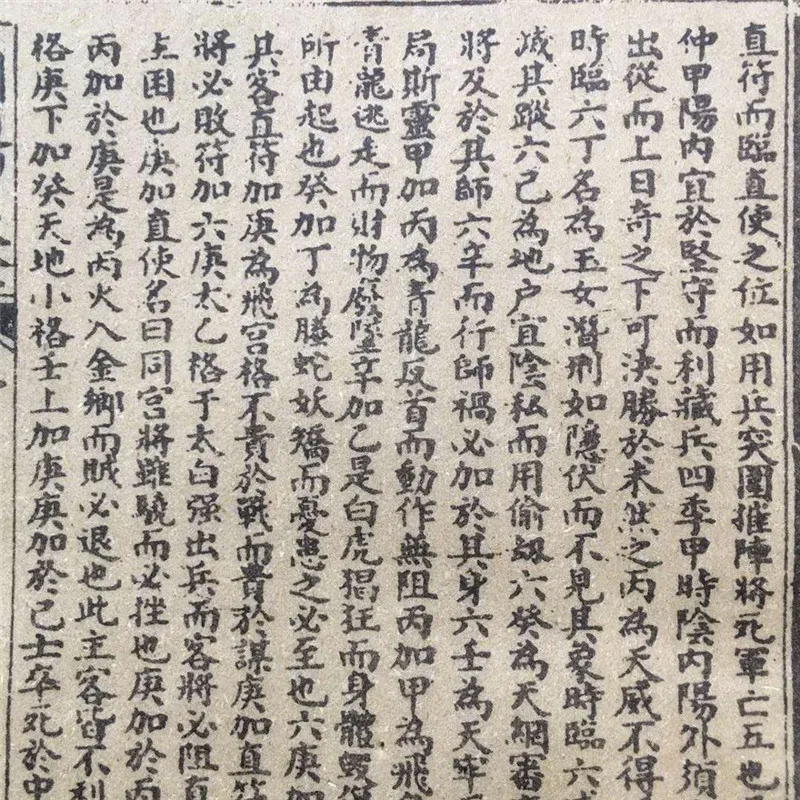 直符而臨直使之位如用兵突圍摧陣將死軍亡五也
仲甲陽內宜於堅守而利藏兵四季甲時陰內陽外須
出從而上日奇之下可決勝於未然之丙為天威不得
時臨六丁名為玉女潛刑如隱伏而不見其象時臨六
滅其蹤六己為地户宜陰私而用偷刼六癸為天網審
將及於其師六辛而行師禍必加於其身六壬為天牢
局斯靈甲加丙為青龍反首而動作無阻丙加甲為飛
青龍逃走而財物廢墮辛加乙是白虎猖狂而身體毀
所由起也癸加丁為螣蛇妖矯而憂患之必至也六庚加
其客直符加庚為飛宮格不貴於戰而貴於謀庚加直符
將必敗符加六庚太乙格于太白强出兵而客將必阻直
主困也庚加直使名曰同宮將雖驍而必挫也庚加於丙
丙加於庚是為丙火入金鄉而賊必退也此主客皆不利
格庚下加癸天地小格壬上加庚庚加於己士卒死於中